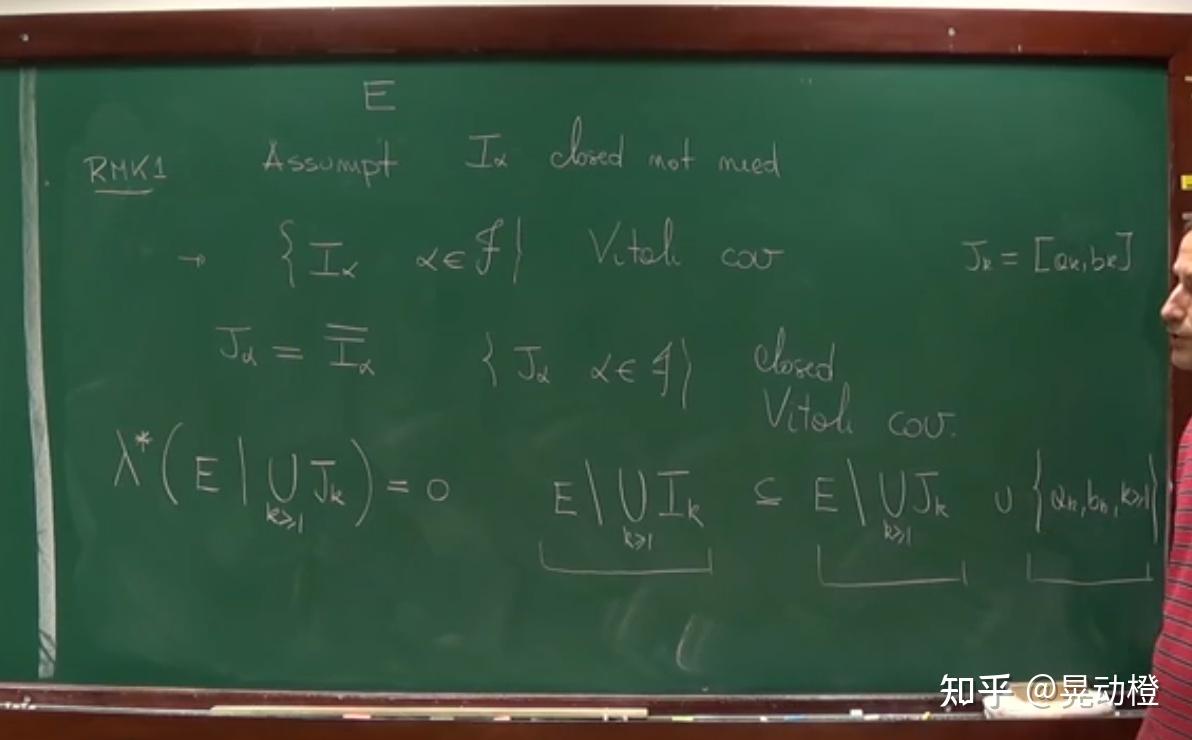 E
RMK1 Assumpt I_α closed not need
→ { I_α α∈ℱ } Vitali cov J_k = [a_k, b_k]
J_α = \overline{I}_α { J_α α∈ℱ } closed
Vitali cov.
λ*( E \ ∪_{k≥1} J_k ) = 0 E \ ∪_{k≥1} I_k ⊆ E \ ∪_{k≥1} J_k ∪ { a_k, b_k, k≥1 }
知乎 @晃动橙